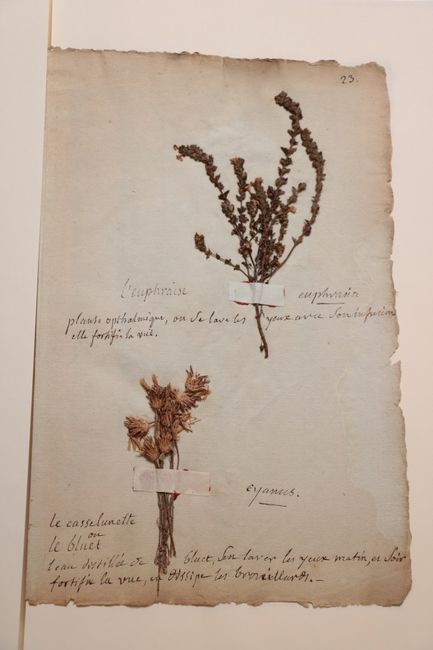 23.
l'euphraise euphrasia
plante opthalmique, on se lave les yeux avec son infusion
elle fortifie la vüe.
cyanus.
le casselunette
ou
le bluet
l'eau distillée de bluet, s'en laver les yeux matin, et soir
fortifie la vue, en dissipe les brouillards. —